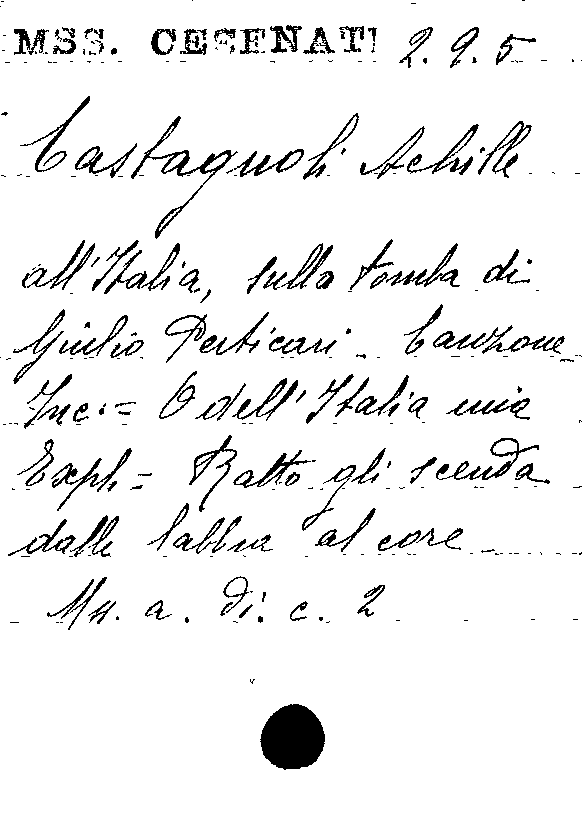 MSS. CESENATI 2.9.5
Castagnoli Achille
all'Italia, sulla tomba di
Giulio Perticari - Canzone
Inc: = O dell'Italia mia
Expl. = Ratto gli scenda
dalle labbra al core
Ms. a. di. c. 2